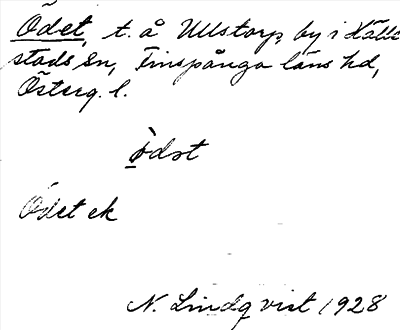 Ödet, t. å Ullstorp, by i Häll-
stads sn, Finspånga läns hd,
Österg. l.
Ödet ek
N. Lindqvist 1928